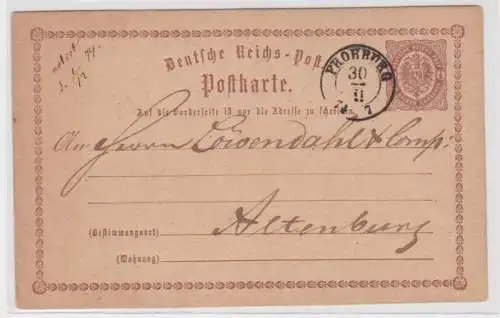 Deutsche Reichs-Post
Postkarte.
FROHBURG
30
11
74
7
Auf die Vorderseite ist nur die Adresse zu schreiben.
An Herrn Löwendahl & Comp:
(Bestimmungsort)
Altenburg
(Wohnung)